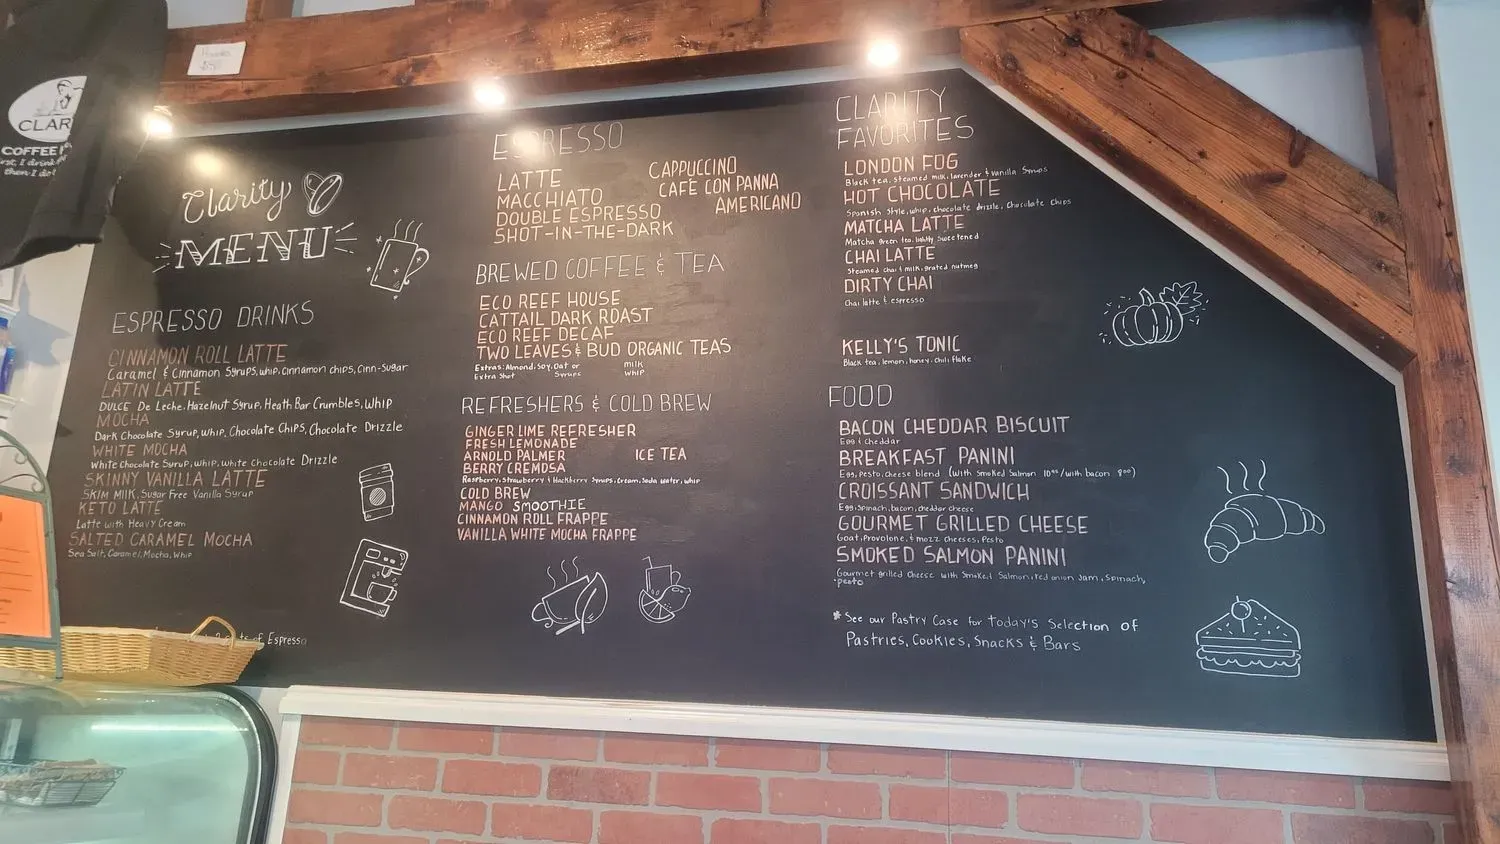 CLAR
COFFEE
then I do
Clarity
MENU
ESPRESSO DRINKS
CINNAMON ROLL LATTE
Caramel & Cinnamon Syrups, whip, cinnamon chips, Cinn-Sugar
LATIN LATTE
DULCE De Leche, Hazelnut Syrup, Heath Bar Crumbles, Whip
MOCHA
Dark Chocolate Syrup, Whip, Chocolate Chips, Chocolate Drizzle
WHITE MOCHA
White Chocolate Syrup, Whip, White Chocolate Drizzle
SKINNY VANILLA LATTE
SKIM MILK, Sugar Free Vanilla Syrup
KETO LATTE
Latte with Heavy Cream
SALTED CARAMEL MOCHA
Sea Salt, Caramel, Mocha, Whip
of Espresso
ESPRESSO
LATTE
MACCHIATO
DOUBLE ESPRESSO
SHOT-IN-THE-DARK
CAPPUCCINO
CAFÈ CON PANNA
AMERICANO
BREWED COFFEE & TEA
ECO REEF HOUSE
CATTAIL DARK ROAST
ECO REEF DECAF
TWO LEAVES & BUD ORGANIC TEAS
Extras: Almond, Soy, Oat or milk
Extra Shot Syrups WHIP
REFRESHERS & COLD BREW
GINGER LIME REFRESHER
FRESH LEMONADE
ARNOLD PALMER ICE TEA
BERRY CREMOSA
Raspberry, Strawberry & blackberry Syrups, Cream, Soda water, whip
COLD BREW
MANGO SMOOTHIE
CINNAMON ROLL FRAPPE
VANILLA WHITE MOCHA FRAPPE
CLARITY
FAVORITES
LONDON FOG
Black tea, steamed milk, lavender & vanilla Syrups
HOT CHOCOLATE
Spanish style, whip, chocolate drizzle, Chocolate Chips
MATCHA LATTE
Matcha green tea, lightly Sweetened
CHAI LATTE
Steamed chai & milk, grated nutmeg
DIRTY CHAI
Chai latte & espresso
KELLY'S TONIC
Black tea, lemon, honey, chili flake
FOOD
BACON CHEDDAR BISCUIT
Egg & Cheddar
BREAKFAST PANINI
Egg, Pesto, cheese blend (with Smoked Salmon / with bacon)
CROISSANT SANDWICH
Egg, Spinach, bacon, cheddar cheese
GOURMET GRILLED CHEESE
Goat, Provolone, & mozz cheeses, Pesto
SMOKED SALMON PANINI
Gourmet grilled Cheese with Smoked Salmon, red onion Jam, Spinach,
pesto
* See our Pastry Case for Today's Selection of
Pastries, Cookies, Snacks & Bars